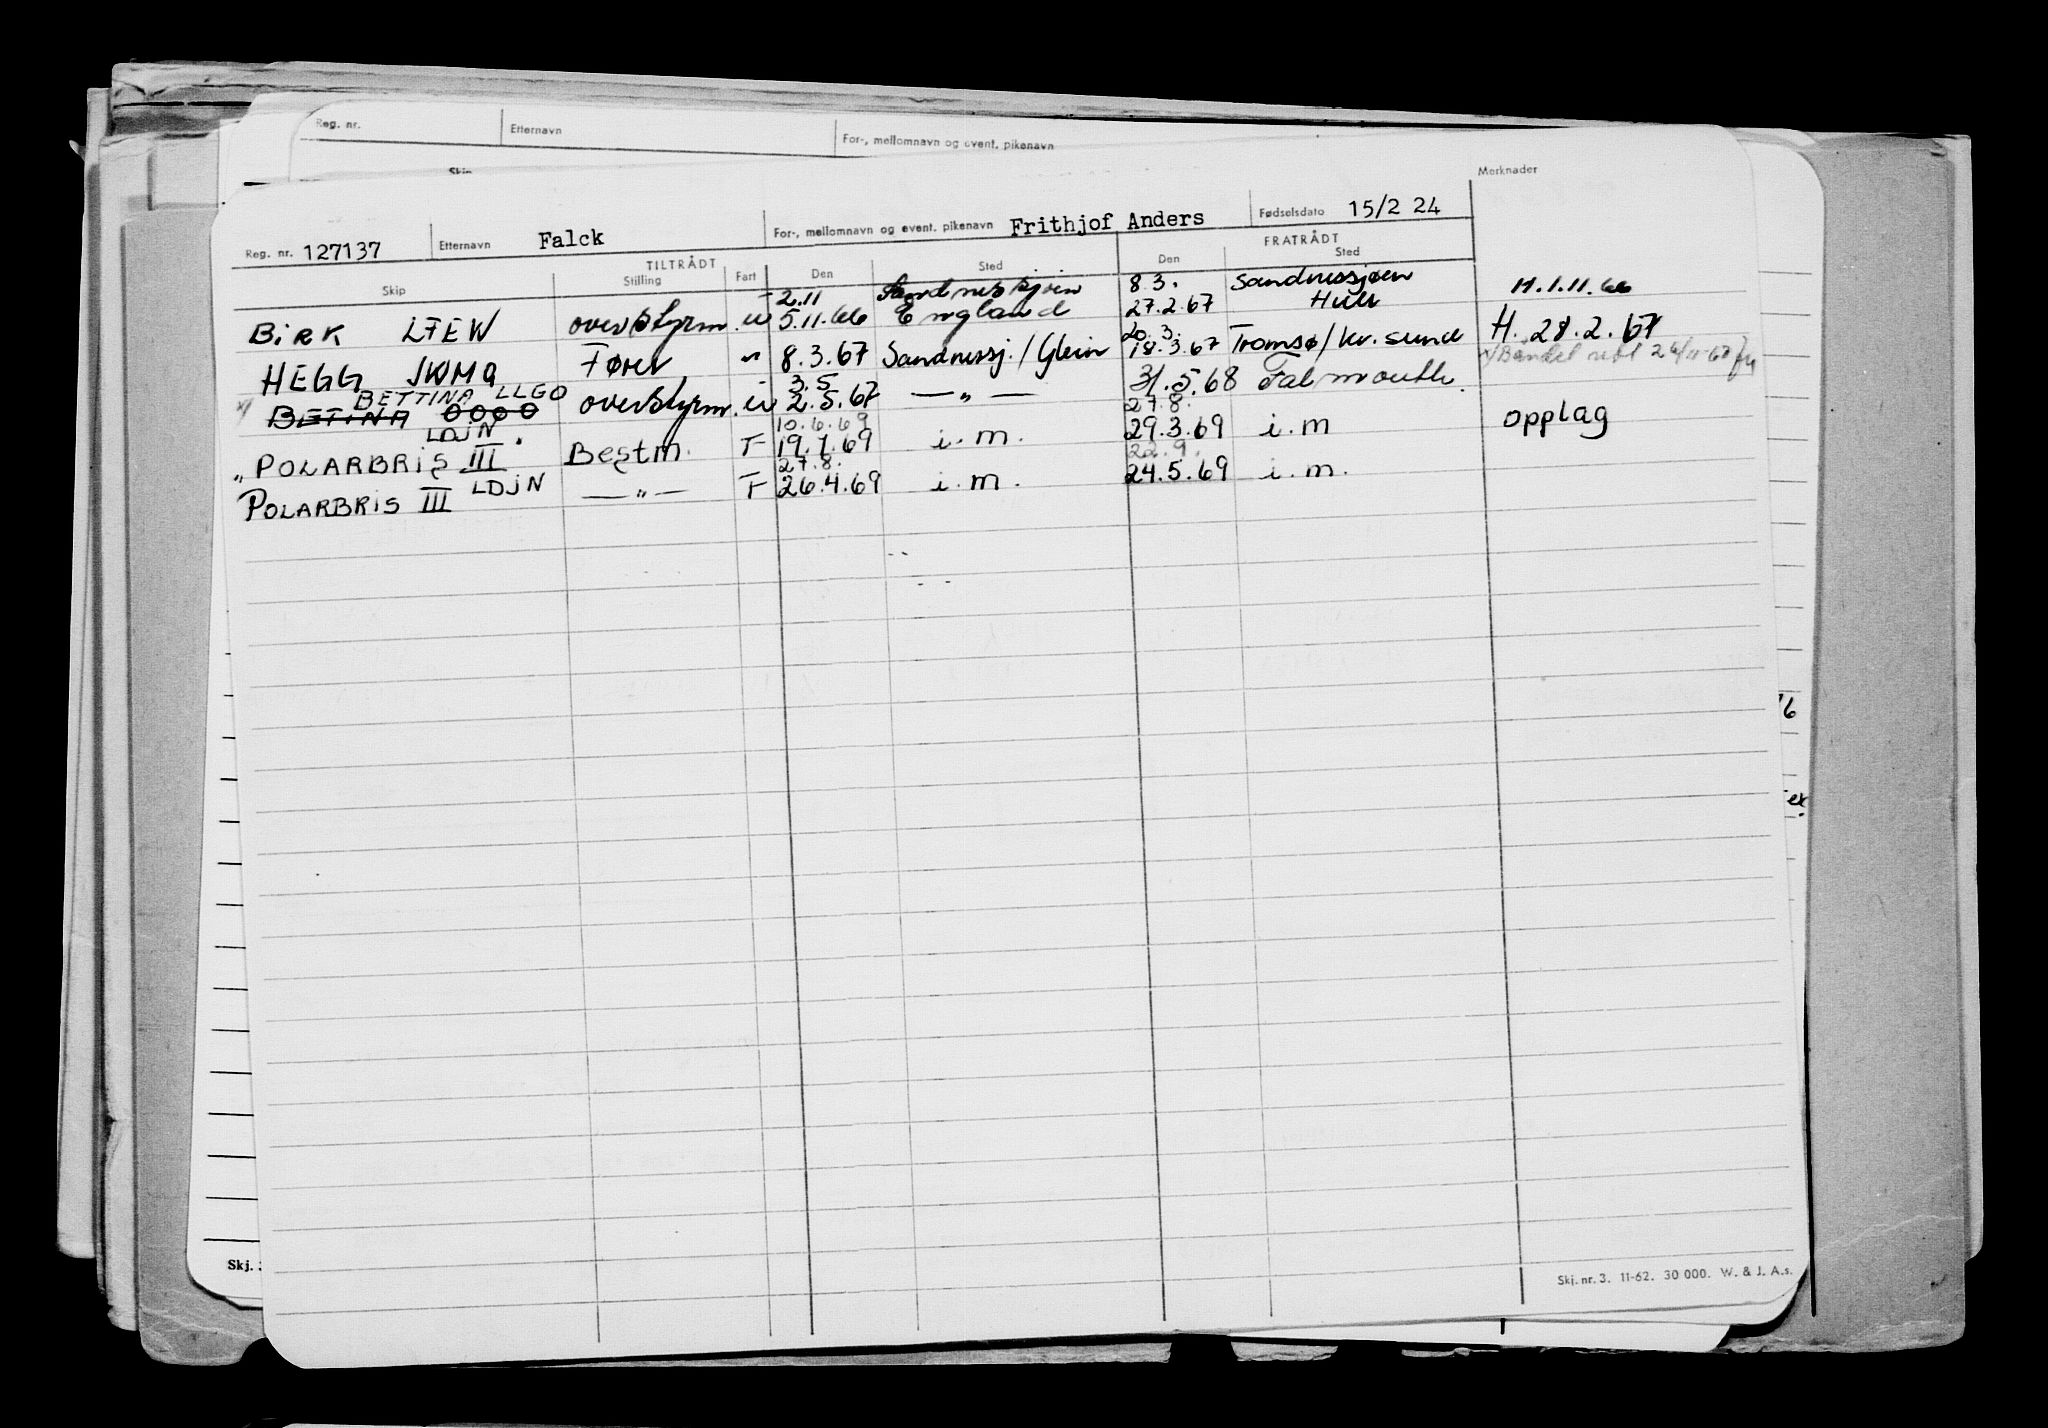 Reg. nr. Etternavn For-, mellomnavn og event. pikenavn
Skip Merknader
Reg. nr. 127137 Etternavn Falck For-, mellomnavn og event. pikenavn Frithjof Anders Fødselsdato 15/2 24
TILTRÅDT FRATRÅDT
Skip Stilling Fart Den Sted Den Sted
2.11 Sandnessjøen 8.3. Sandnessjøen H.1.11.66
BIRK LFEW overstyrm. u 5.11.66 England 27.2.67 Hull
20.3.
HEGG JWMQ Fører " 8.3.67 Sandnessj./Glein 18.3.67 Tromsø/kr.sund H. 28.2.67
BETTINA LLGO 3.5
x/ BETINA 0000 overstyrm. u 2.5.67 — " — 31.5.68 Falmouth.
LDJN 10.6.69 27.8.
" POLARBRIS III Bestm. F 19.1.69 i.m. 29.3.69 i.m opplag
27.8. 22.9.
POLARBRIS III LDJN — " — F 26.4.69 i.m. 24.5.69 i.m.
Skj. nr. 3. 11-62. 30 000. W. & J. A.s.
Skj.